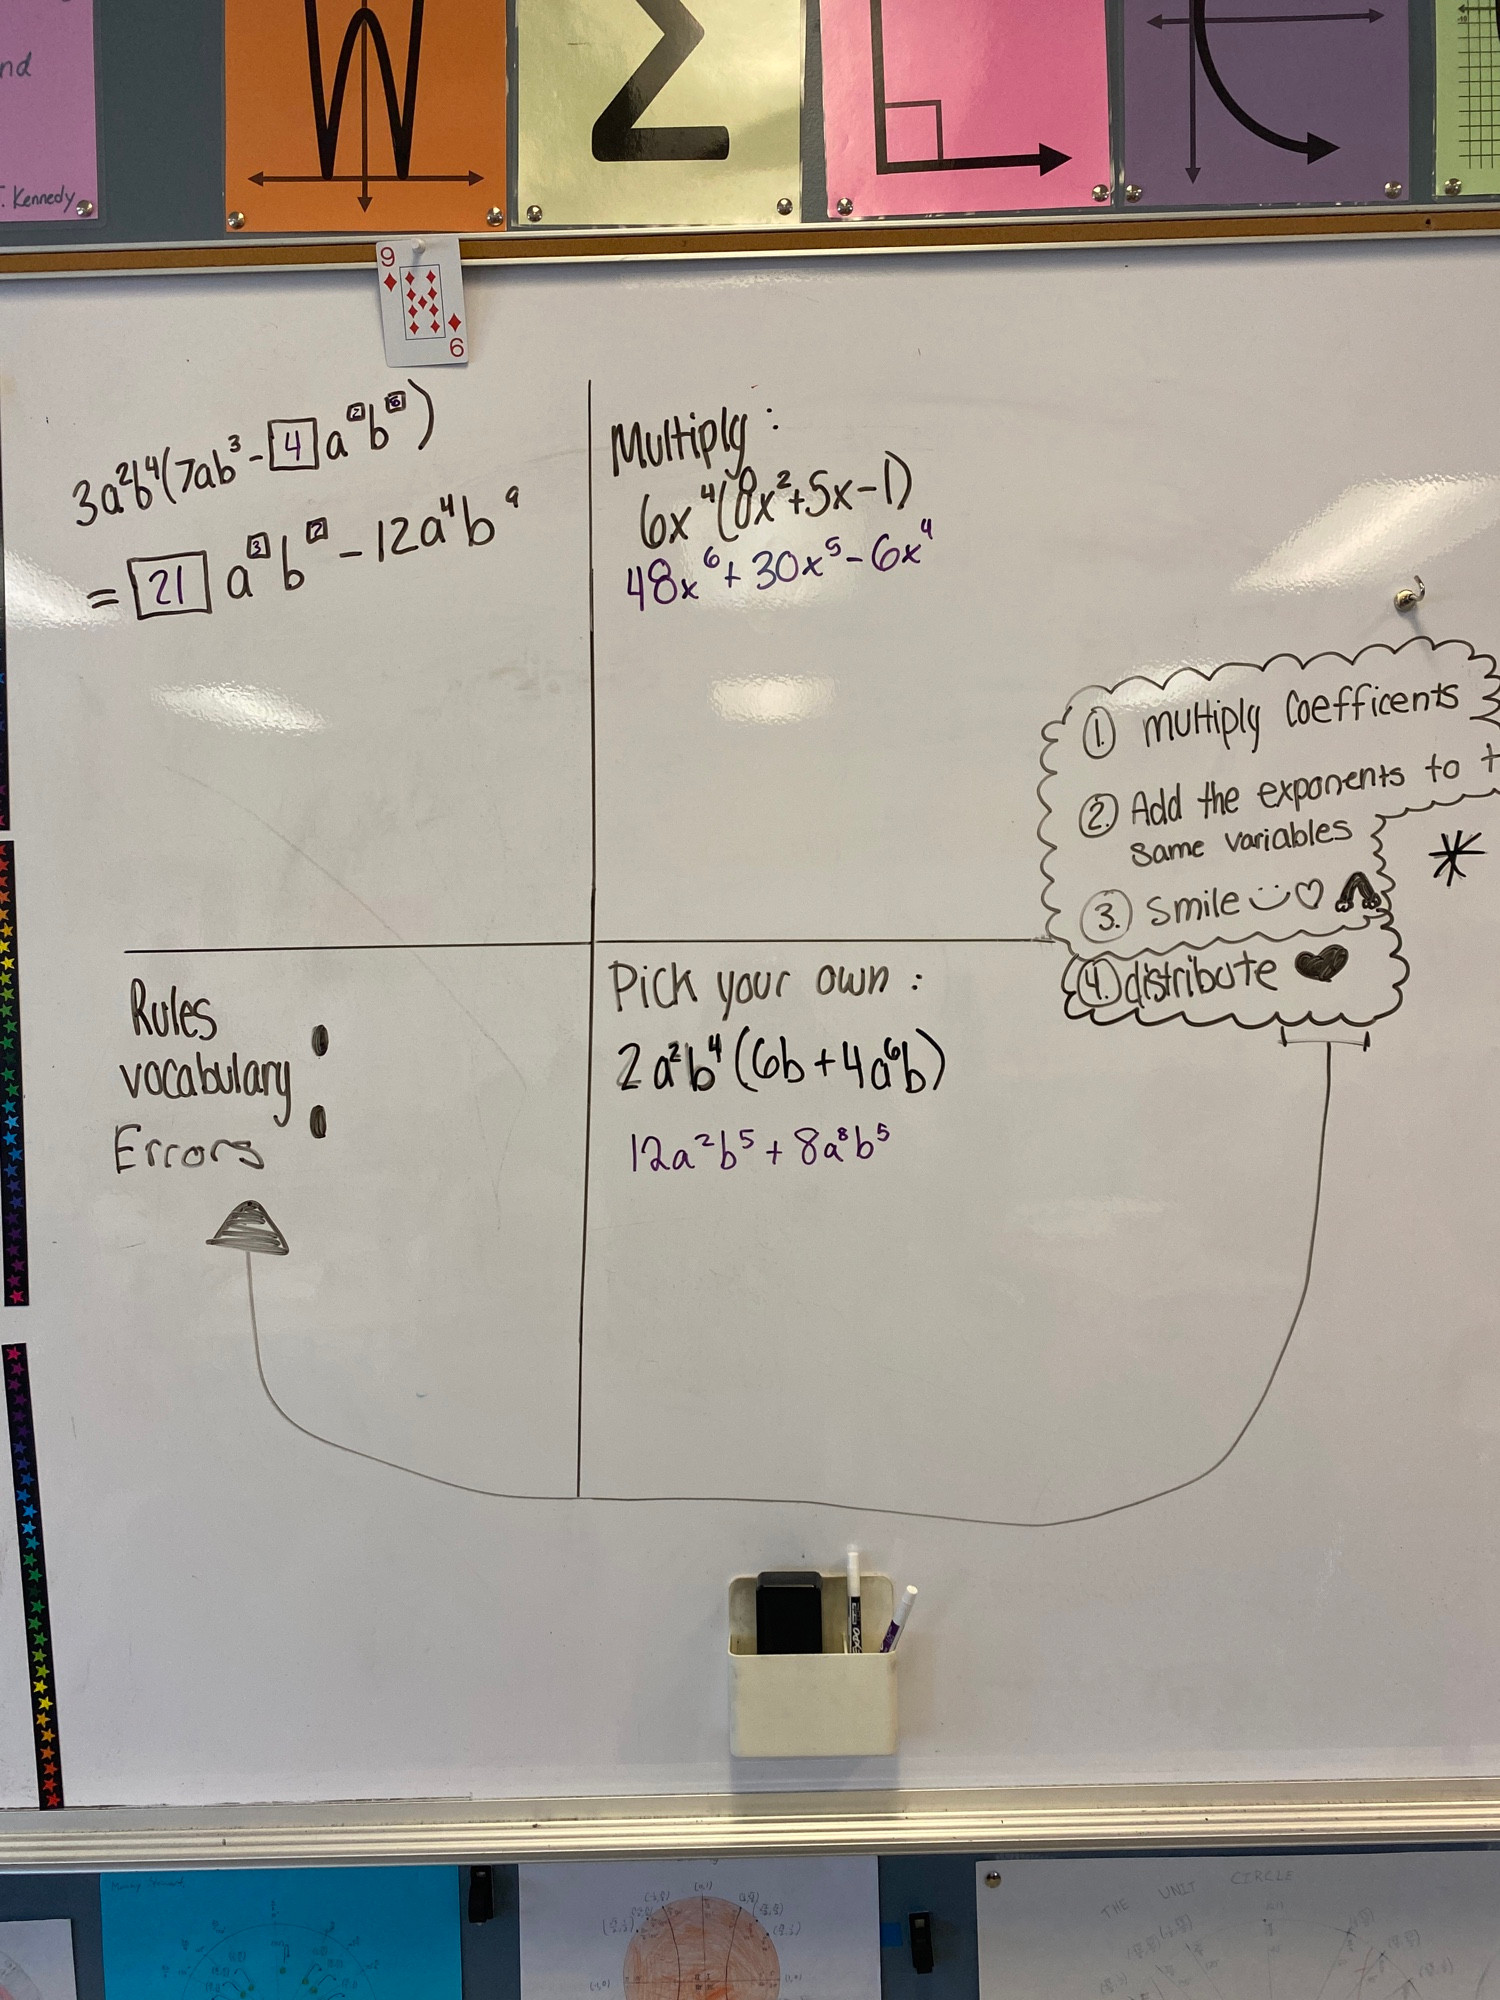 nd
T. Kennedy
9
6
3a²b⁴(7ab³ - 4 a²b⁵)
= 21 a³b⁷ - 12a⁴b⁹
Multiply :
6x⁴(8x²+5x-1)
48x⁶+30x⁵-6x⁴
1. multiply Coefficents
2. Add the exponents to t
same variables
3. smile
4. distribute
Rules
vocabulary :
Errors
Pick your own :
2a²b⁴(6b+4a⁶b)
12a²b⁵+8a⁸b⁵
EXPO
THE UNIT CIRCLE